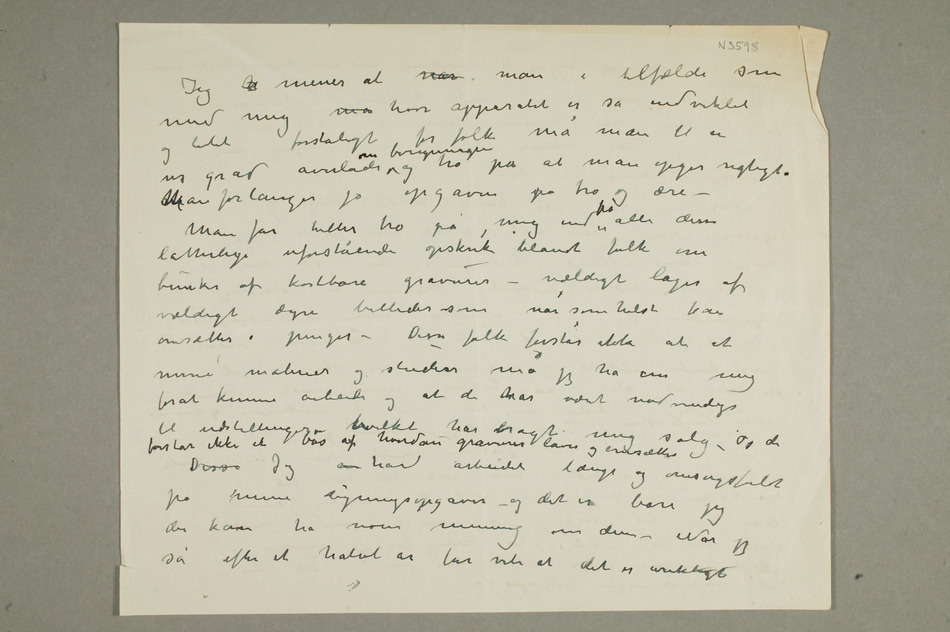 N3598
Jeg mener at når man i tilfælde som
med mig må hvor apparatet er så indviklet
og lidet forståligt for folk må man til en
vis grad avvlade om og beregninger tro på at man opgir rigtigt.
Man forlanger jo opgaven på tro og ære –
Man får heller tro på mig end på alle disse
latterlige uforstående opskrik blandt folk om
bunker af kostbare gravurer – vældigt lager af
vældigt dyre billeder som når somhelst kan
omsættes i penger – Disse folk forstår ikke at at
mine malerier og studier må jeg ha om mig
forat kunne arbeide og at de har vært nødvendige
til udstillingerne hvilket har bragt mig salg – Og de
forstår ikke et bøs af hvordan gravurer laves og omsættes
Disse Jeg har arbeidet længe og omsorgsfuldt
på denne ligningsopgaver – og det er bare jeg
der kan ha noen mening om dem – Når jeg
så efter et halvt år får vite at det er uriktigt